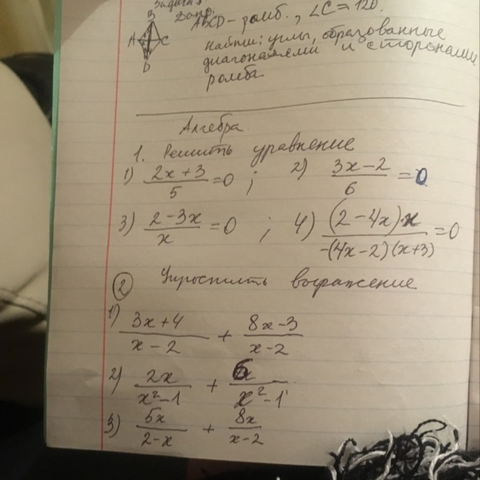 Задача
B
ABCD - ромб., ∠C = 120.
A C
найти: углы, образованные
диагоналями и сторонами
D
ромба.
Алгебра
1. Решить уравнение
1) (2x + 3)/5 = 0 ; 2) (3x - 2)/6 = 0
3) (2 - 3x)/x = 0 ; 4) ((2 - 4x)·x)/(-(4x - 2)(x + 3)) = 0
2 Упростить выражение
1) (3x + 4)/(x - 2) + (8x - 3)/(x - 2)
2) 2x/(x² - 1) + 6x/(x² - 1)
3) 5x/(2 - x) + 8x/(x - 2)